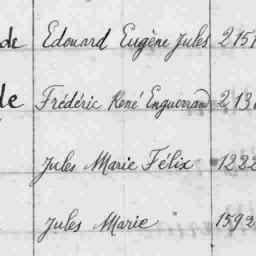 de Edouard Eugène Jules 215
de Frédéric René Enguerrand 213
Jules Marie Félix 1222
Jules Marie 1592